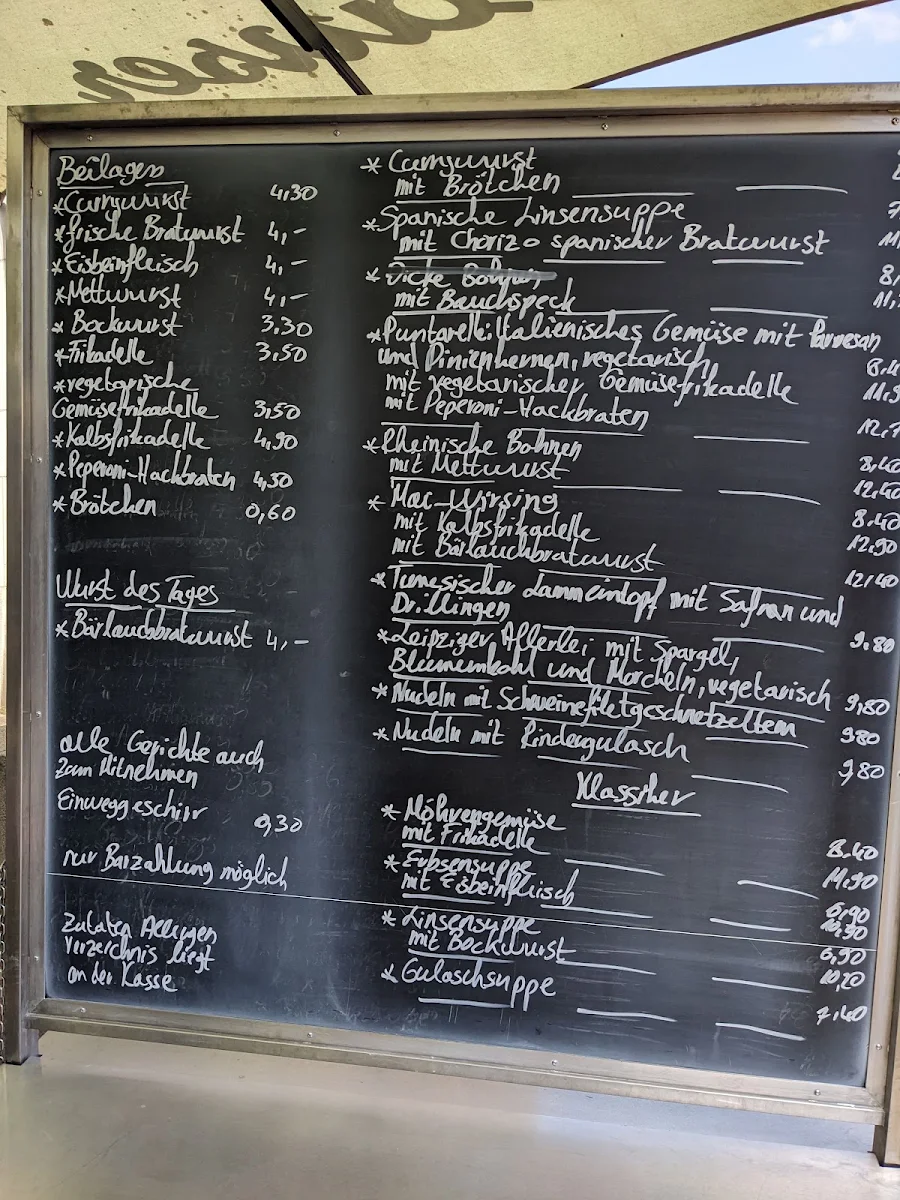 Beilagen
*Currywurst 4,30
*frische Bratwurst 4,-
*Eisbeinfleisch 4,-
*Mettwurst 4,-
* Bockwurst 3,30
*Frikadelle 3,50
*vegetarische
Gemüsefrikadelle 3,50
*Kalbsfrikadelle 4,90
*Peperoni-Hackbraten 4,50
* Brötchen 0,60
Wurst des Tages
*Bärlauchbratwurst 4,-
alle Gerichte auch
zum Mitnehmen
Einweggeschirr
0,30
nur Barzahlung möglich
Zutaten Allergen
Verzeichnis liegt
an der Kasse
* Currywurst
mit Brötchen
*Spanische Linsensuppe
mit Chorizo spanischer Bratwurst
* Dicke Bohnen,
mit Bauchspeck
*Puntarelle Italienisches Gemüse mit Parmesan
und Pinienkernen, vegetarisch
mit vegetarischer Gemüsefrikadelle
mit Peperoni-Hackbraten
*Rheinische Bohnen 8,40
mit Mettwurst 12,40
* Mac-Wirsing 8.40
mit Kalbsfrikadelle 12,90
mit Bärlauchbratwurst 12,40
*Tunesischer Lammeintopf mit Safran und
Drillingen 9.80
*Leipziger Allerlei mit Spargel,
Blumenkohl und Morcheln, vegetarisch 9,80
*Nudeln mit Schweinefiletgeschnetzeltem 980
*Nudeln mit Rindergulasch 9,80
Klassiker
* Möhrengemüse 8.40
mit Frikadelle 11.90
* Erbsensuppe 6,90
mit Eisbeinfleisch
* Linsensuppe 6,90
mit Bockwurst 10,20
* Gulaschsuppe 7,40